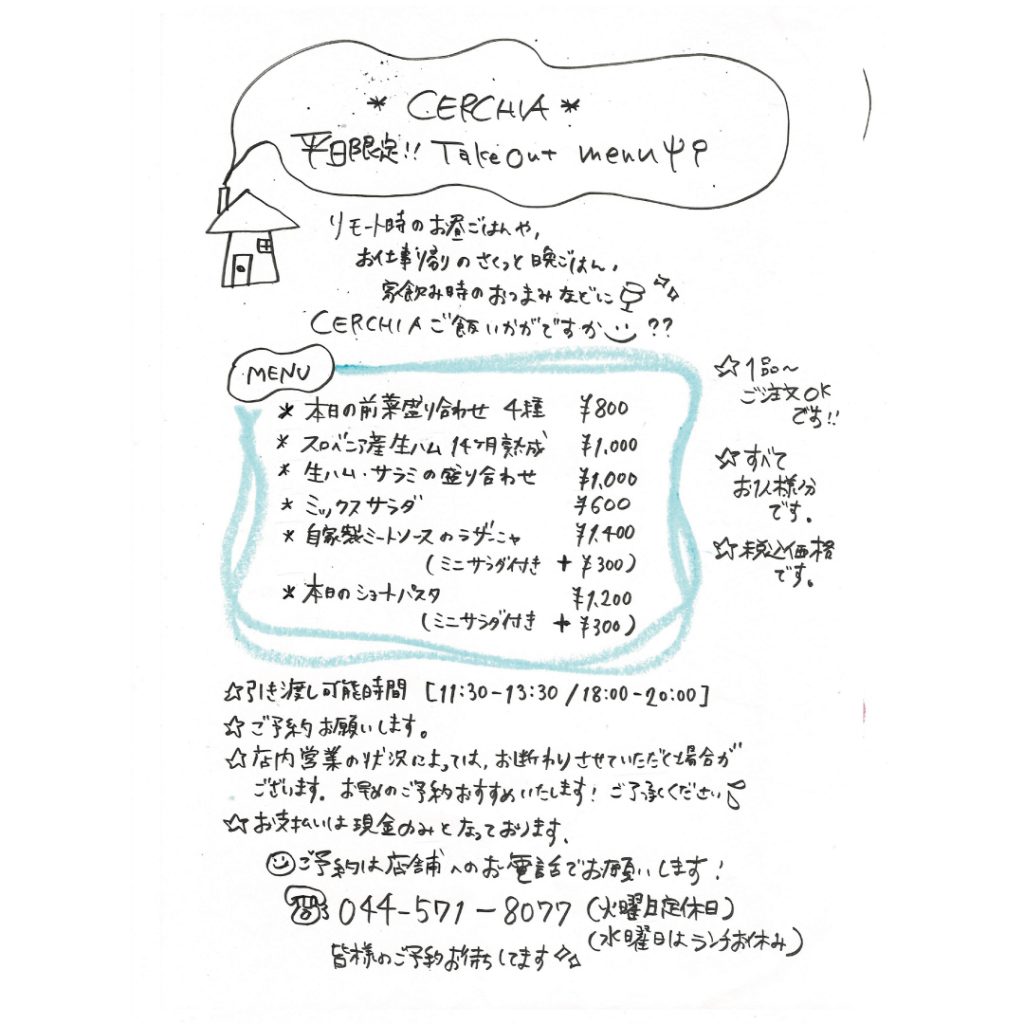 * CERCHIA *
平日限定!! Take Out menu
リモート時のお昼ごはんや,
お仕事帰りのさくっと晩ごはん,
家飲み時のおつまみなどに
CERCHIAご飯いかがですか ??
MENU
* 本日の前菜盛り合わせ 4種 ¥800
* スロベニア産生ハム 14ヶ月熟成 ¥1.000
* 生ハム・サラミの盛り合わせ ¥1.000
* ミックスサラダ ¥600
* 自家製ミートソースのラザーニャ ¥1.400
(ミニサラダ付き + ¥300)
* 本日のショートパスタ ¥1.200
(ミニサラダ付き + ¥300)
☆1品〜
ご注文OK
です!!
☆すべて
お1人様分
です。
☆税込価格
です。
☆引き渡し可能時間 [11:30-13:30 / 18:00-20:00]
☆ご予約お願いします。
☆店内営業の状況によっては, お断わりさせていただく場合が
ございます。お早めのご予約おすすめいたします! ご了承ください
☆お支払いは現金のみとなっております.
ご予約は店舗へのお電話でお願いします!
044-571-8077 (火曜日定休日)
(水曜日はランチお休み)
皆様のご予約お待ちしてます